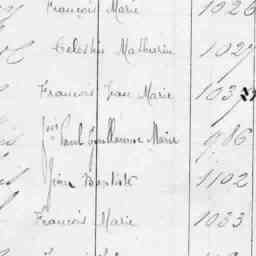 François Marie 1026
Celestin Mathurin 1027
François Jean Marie 103
Paul Guillaume Marie 986
Jean Baptiste 1102
François Marie 1033